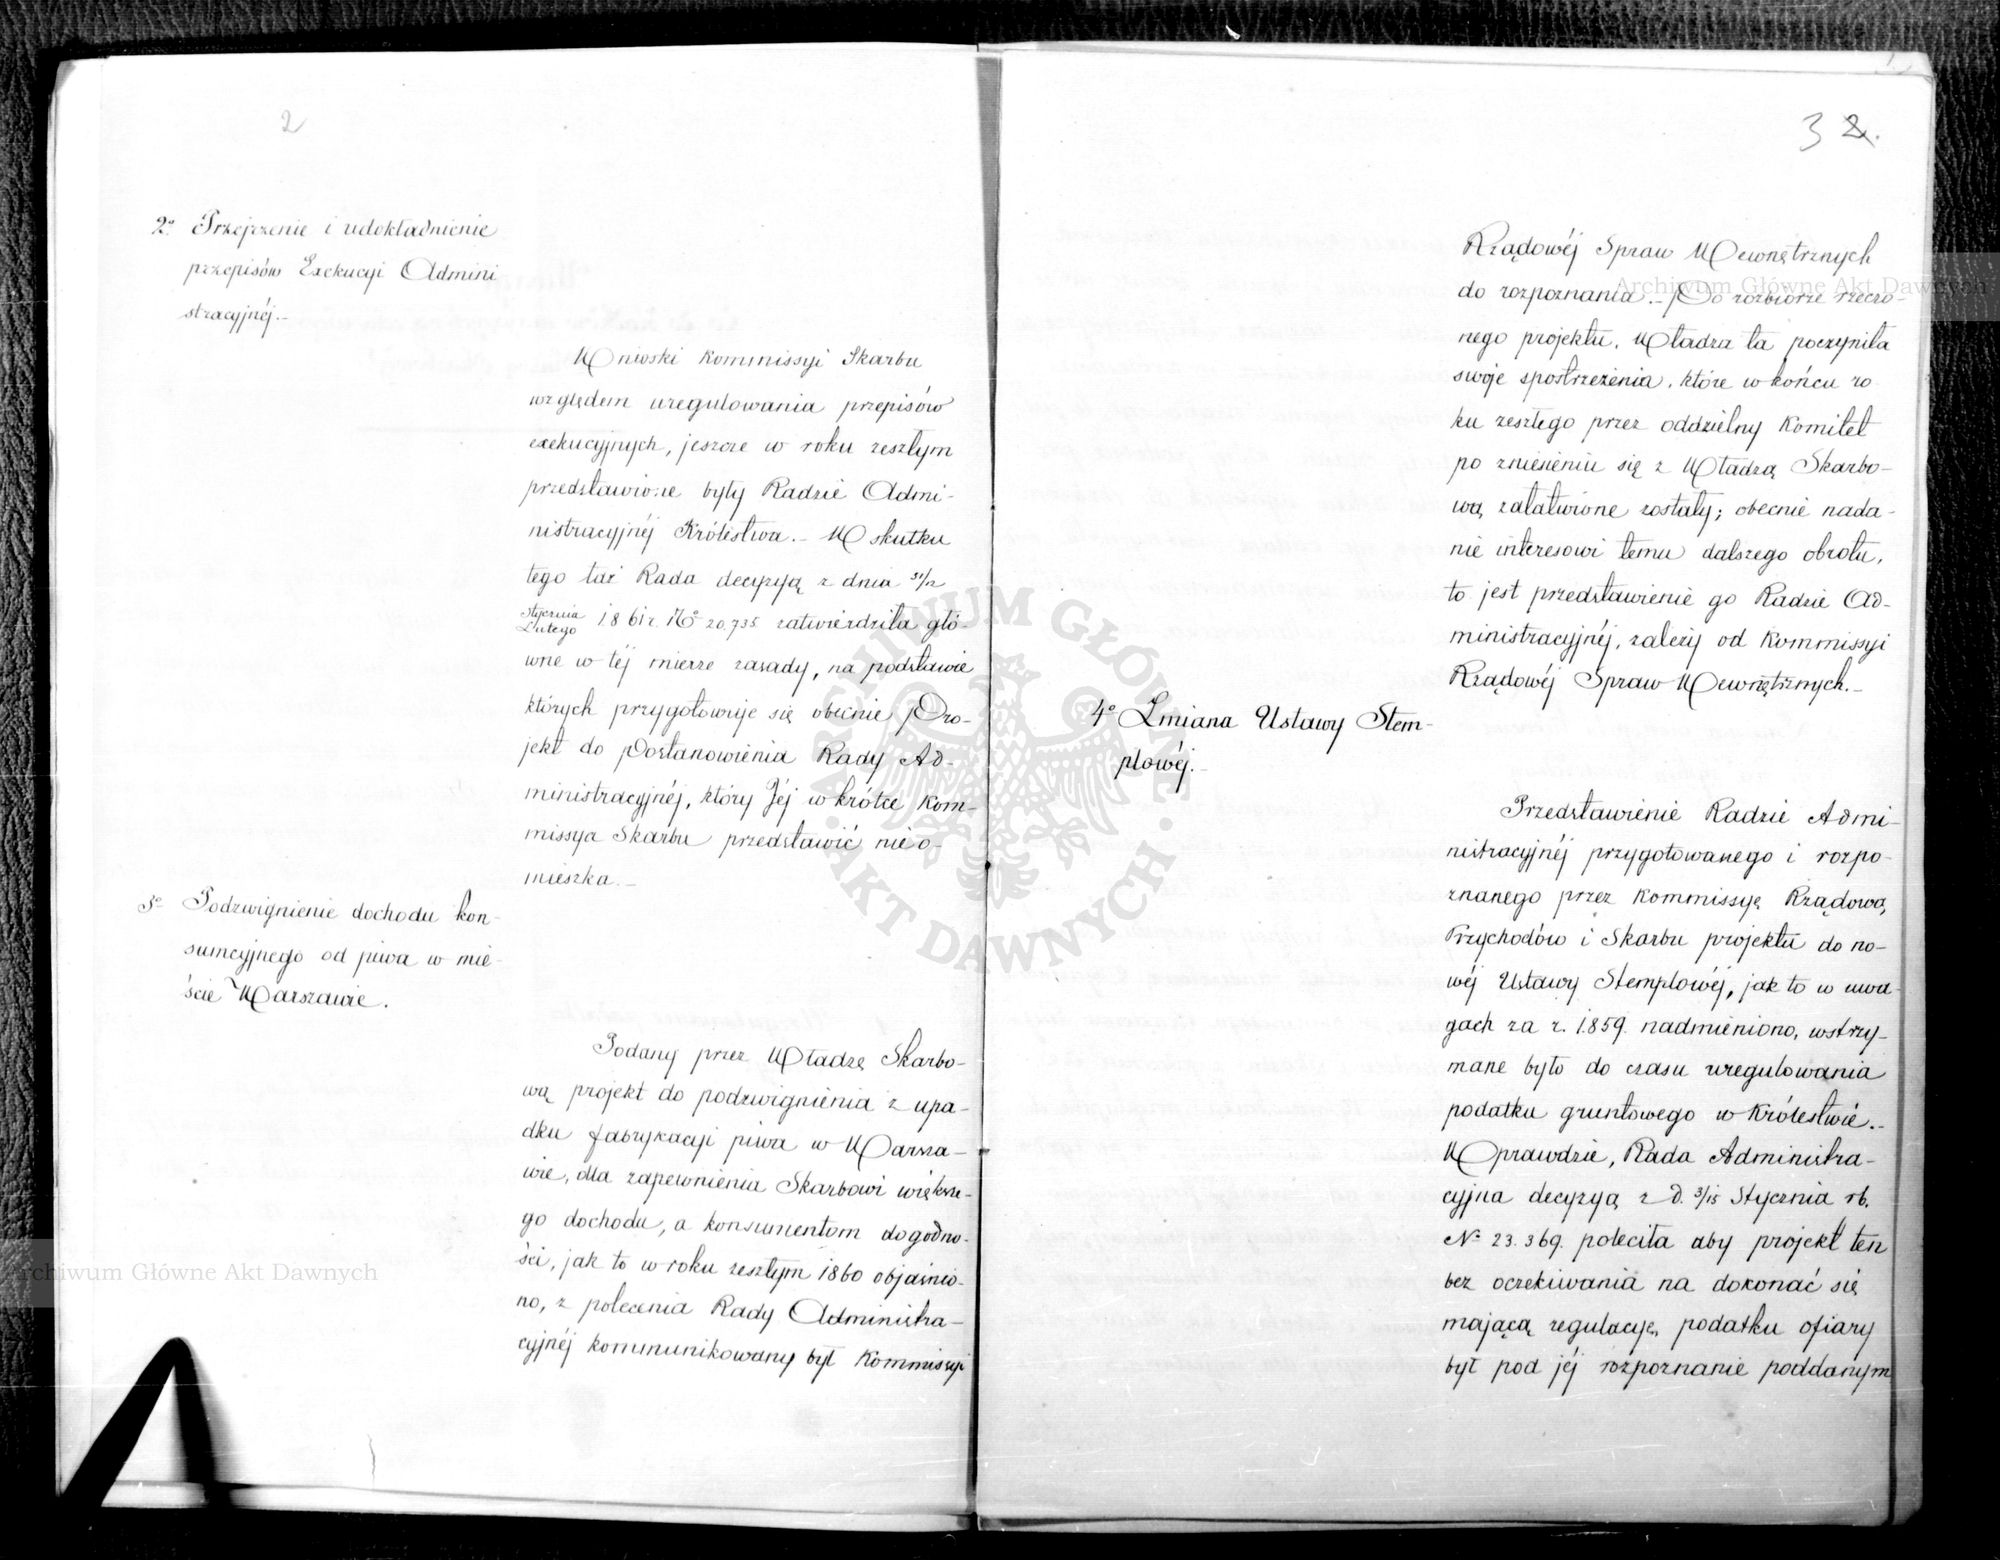 2
2º Przejrzenie i udokładnienie
przepisów Exekucyi Admini
stracyjnéj.–
Wnioski Kommissyi Skarbu
względem uregulowania przepisów
exekucyjnych, jeszcze w roku zeszłym
przedstawione były Radzie Admi-
nistracyjnéj Królestwa.– W skutku
tego taż Rada decyzyą z dnia 31/12
Stycznia
Lutego 1861 r. Nº 20.735 zatwierdziła głó-
wne w téj mierze zasady, na podstawie
których przygotowuje się obecnie Pro-
jekt do Postanowienia Rady Ad-
ministracyjnéj, który Jéj wkrótce Kom-
missya Skarbu przedstawić nieo-
mieszka.–
3º Podzwignienie dochodu kon-
sumcyjnego od piwa w mie-
ście Warszawie.
Podany przez Władzę Skarbo-
wą projekt do podzwignienia z upa-
dku fabrykacyi piwa w Warsza-
wie, dla zapewnienia Skarbowi większe-
go dochodu, a konsumentom dogodno-
ści, jak to w roku zeszłym 1860 objaśnio-
no, z polecenia Rady Administra-
cyjnéj kommunikowany był Kommissyi
3 2.
Rządowéj Spraw Wewnętrznych
do rozpoznania.– Po rozbiorze rzeczo-
nego projektu, Władza ta poczyniła
swoje spostrzeżenia, które w końcu ro-
ku zeszłego przez oddzielny Komitet
po zniesieniu się z Władzą Skarbo-
wą załatwione zostały; obecnie nada-
nie interesowi temu dalszego obrotu,
to jest przedstawienie go Radzie Ad-
ministracyjnéj, zależy od Kommissyi
Rządowéj Spraw Wewnętrznych.–
4º Zmiana Ustawy Stem-
plowéj.–
Przedstawienie Radzie Admi-
nistracyjnéj przygotowanego i rozpo-
znanego przez Kommissyę Rządową
Przychodów i Skarbu projektu do no-
wéj Ustawy Stemplowéj, jak to w uwa-
gach za r. 1859. nadmieniono, wstrzy-
mane było do czasu uregulowania
podatku gruntowego w Królestwie.–
Wprawdzie, Rada Administra-
cyjna decyzyą z d. 3/15 Stycznia rb.
Nº 23.369. poleciła aby projekt ten
bez oczekiwania na dokonać się
mającą regulacyę podatku ofiary
był pod jéj rozpoznanie poddanym
Archiwum Główne Akt Dawnych
Archiwum Główne Akt Dawnych
ARCHIWUM GŁÓWNE · AKT DAWNYCH ·